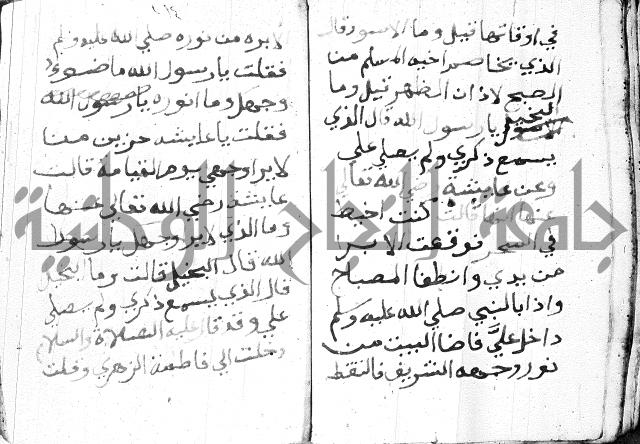 في اوقاتها قيل وما الاسود قال
الذي يخاصم اخيه المسلم من
الصبح لاذان الظهر قيل وما
البخيل
يا رسول الله قال الذي
يسمع ذكري ولم يصلي علي
وعن عايشة رضي الله تعالي
عنها انها قالت كنت اخيط
في السحر فوقعت الابرا
من يدي وانطفا المصباح
واذا بالنبي صلي الله عليه وسلم
داخل عليَّ فاضا البيت من
نور وجهه الشريف فالتقط
الابره من نوره صلي الله عليه وسلم
فقلت يا رسول الله ما ضوء
وجهك وما انوره يا رسول الله
فقلت يا عايشه حزين من
لا يرا وجهي يوم القيامة قالت
عايشة رضي الله تعالي عنها
وما الذي لا ير وجهك يا رسول
الله قال البخيل قالت وما البخيل
قال الذي يسمع ذكري ولم يصلي
علي وقد قال عليه الصلاة والسلام
دخلت الي فاطمة الزهري وقلت
جامعة النجاح الوطنية